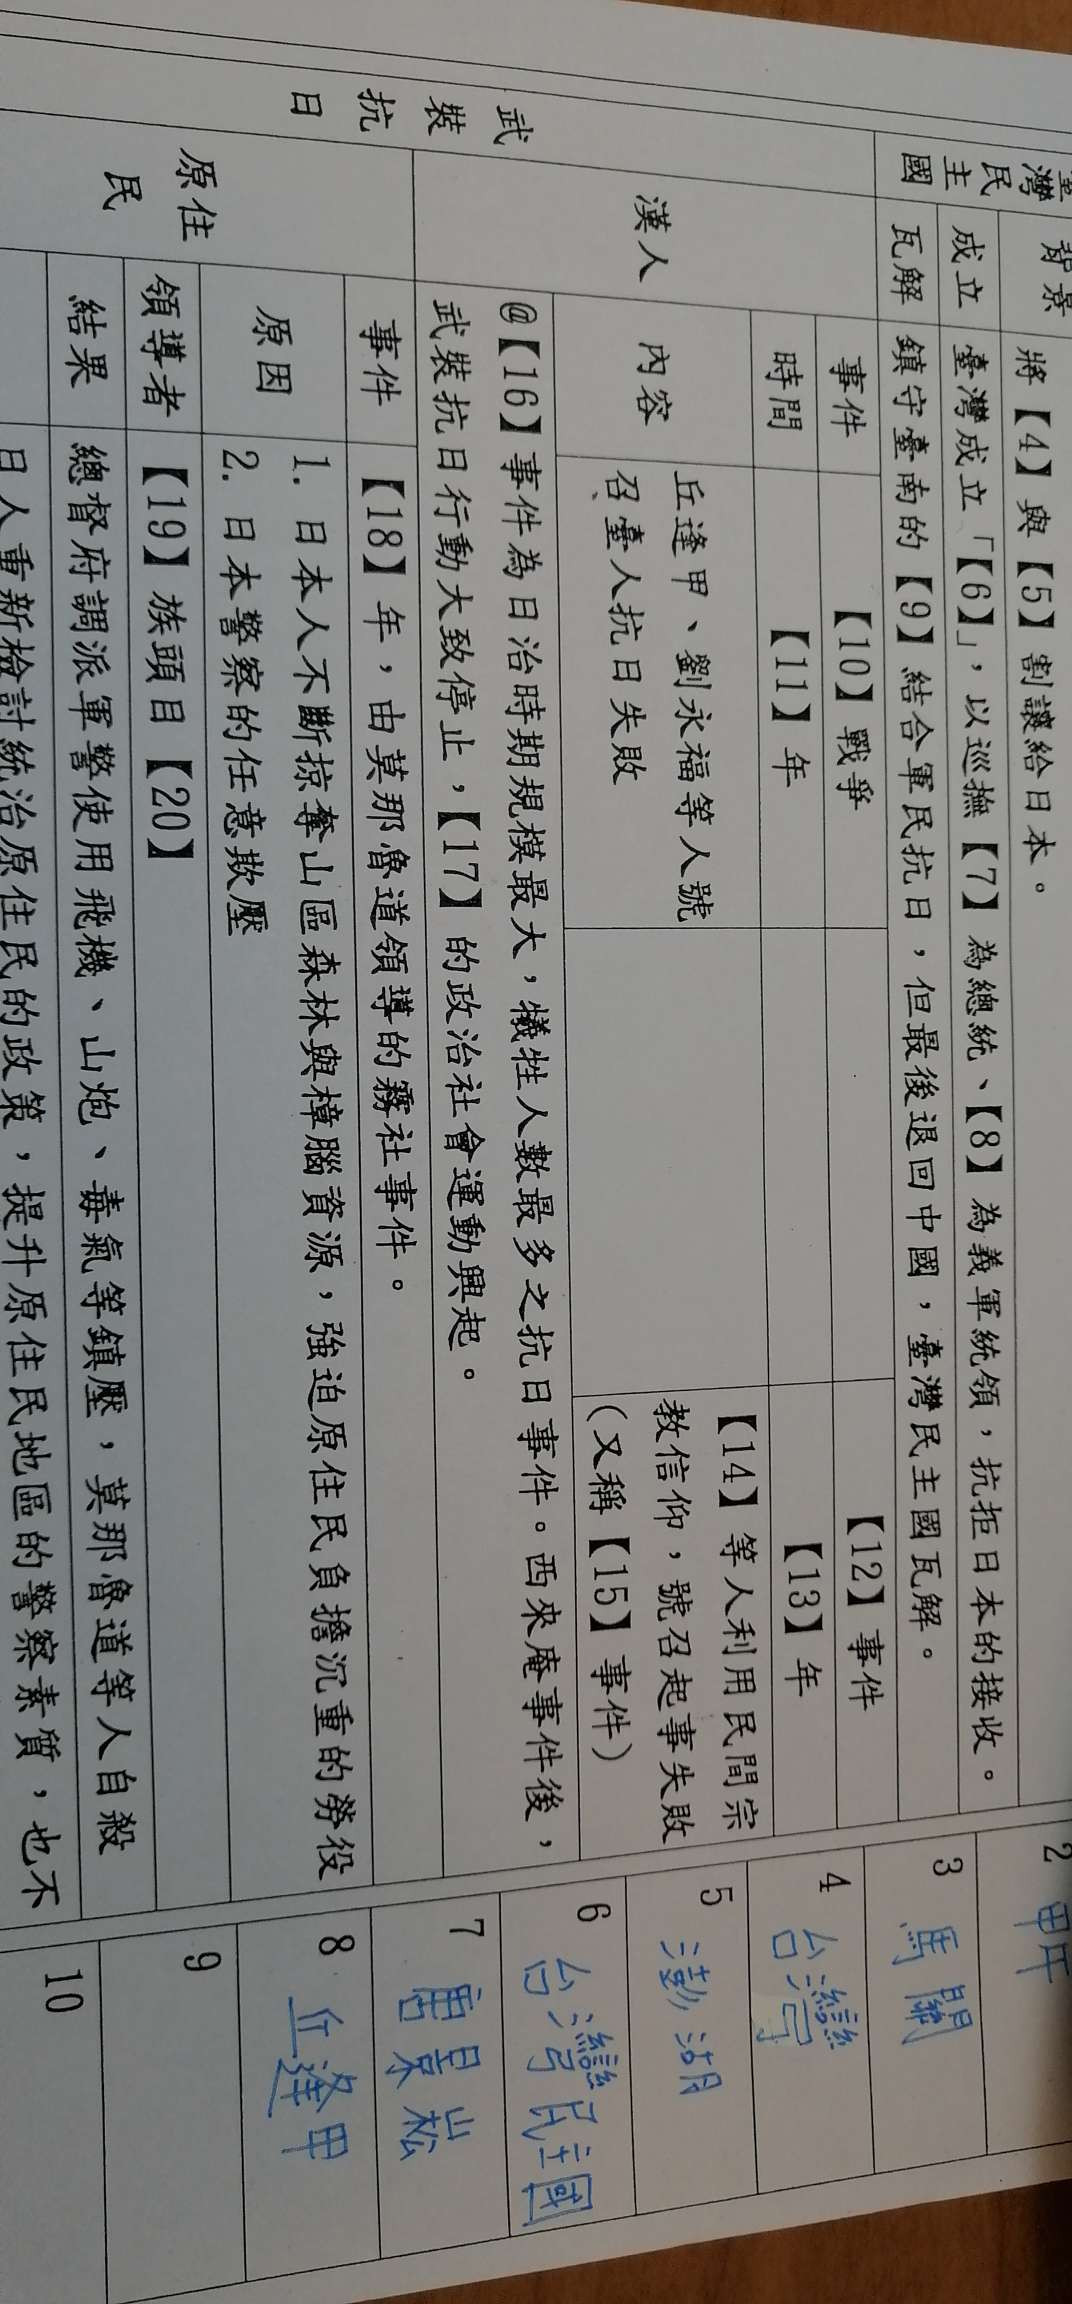 背景 將【4】與【5】割讓給日本。
灣民主國
成立 臺灣成立「【6】」，以巡撫【7】為總統、【8】為義軍統領，抗拒日本的接收。
瓦解 鎮守臺南的【9】結合軍民抗日，但最後退回中國，臺灣民主國瓦解。
武裝抗日
漢人
事件 【10】戰爭 【12】事件
時間 【11】年 【13】年
內容
丘逢甲、劉永福等人號
召臺人抗日失敗
【14】等人利用民間宗
教信仰，號召起事失敗
（又稱【15】事件）
@【16】事件為日治時期規模最大，犧牲人數最多之抗日事件。西來庵事件後，
武裝抗日行動大致停止，【17】的政治社會運動興起。
原住民
事件 【18】年，由莫那魯道領導的霧社事件。
原因
1. 日本人不斷掠奪山區森林與樟腦資源，強迫原住民負擔沉重的勞役
2. 日本警察的任意欺壓
領導者 【19】族頭目【20】
結果
總督府調派軍警使用飛機、山炮、毒氣等鎮壓，莫那魯道等人自殺
日人重新檢討統治原住民的政策，提升原住民地區的警察素質，也不
2 甲午
3 馬關
4 台灣
5 澎湖
6 台灣民主國
7 唐景崧
8 丘逢甲
9
10